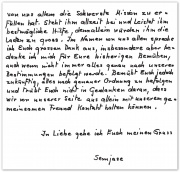 von uns allem die Schwerste Mission zu er-
füllen hat. Steht ihm allzeit bei und leistet ihm
bestmögliche Hilfe, demallein würden ihm die
Lasten zu gross. Im Namen von uns allen spreche
ich Euch grossen Dank aus, insbesondere aber be-
danke ich mich für Eure bisherigen Bemühen,
auch wenn nicht immer alles genau nach unseren
Bestimmungen befolgt wurde. Bemüht Euch jedoch
zukünftig, alles nach genauer Ordnung zu befolgen
und trübt Euch nicht in Gedanken daran, dass
wir von unserer Seite aus allein mit unserem ge-
meinsamen Freund Kontakt halten können.
In Liebe gebe ich Euch meinen Gruss
Semjase